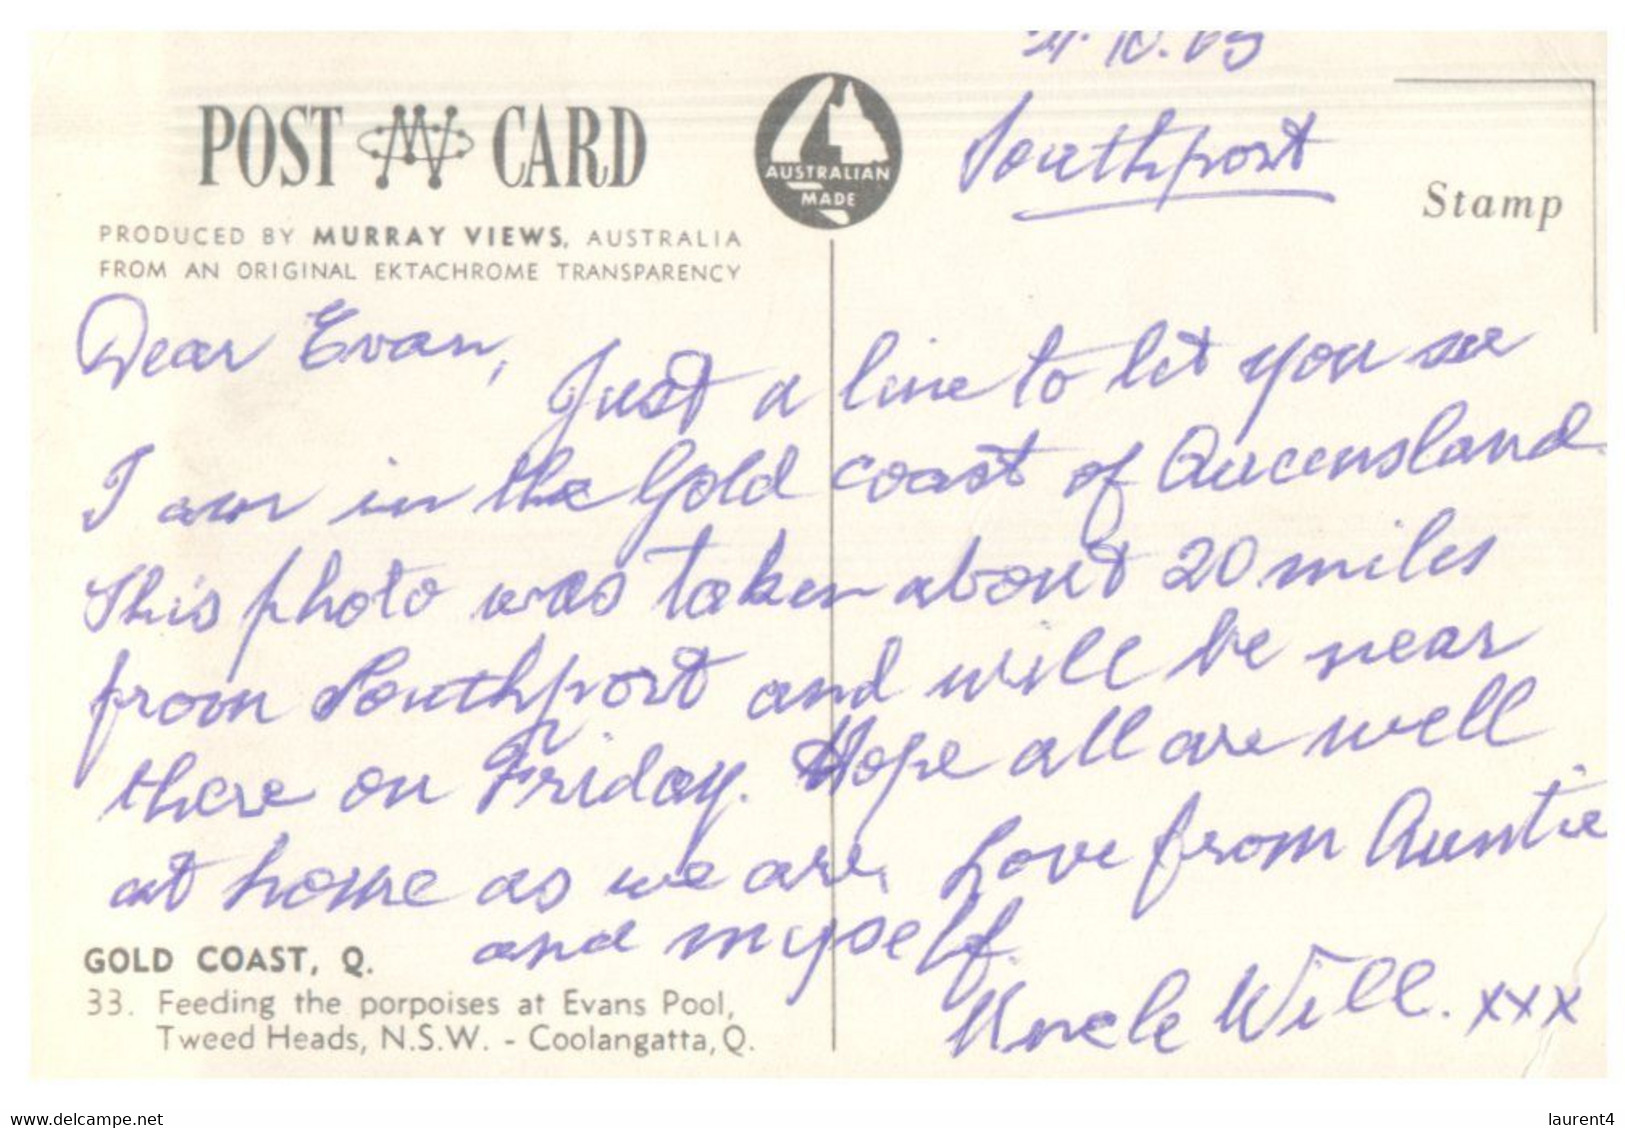 POST CARD
PRODUCED BY MURRAY VIEWS, AUSTRALIA
FROM AN ORIGINAL EKTACHROME TRANSPARENCY
AUSTRALIAN
MADE
Southport
Stamp
Dear Evan,
Just a line to let you see
I am in the Gold coast of Queensland.
This photo was taken about 20 miles
from Southport and will be near
there on Friday. Hope all are well
at home as we are, Love from Auntie
and myself.
Uncle Will. xxx
GOLD COAST, Q.
33. Feeding the porpoises at Evans Pool,
Tweed Heads, N.S.W. - Coolangatta, Q.
www.delcampe.net
laurent4